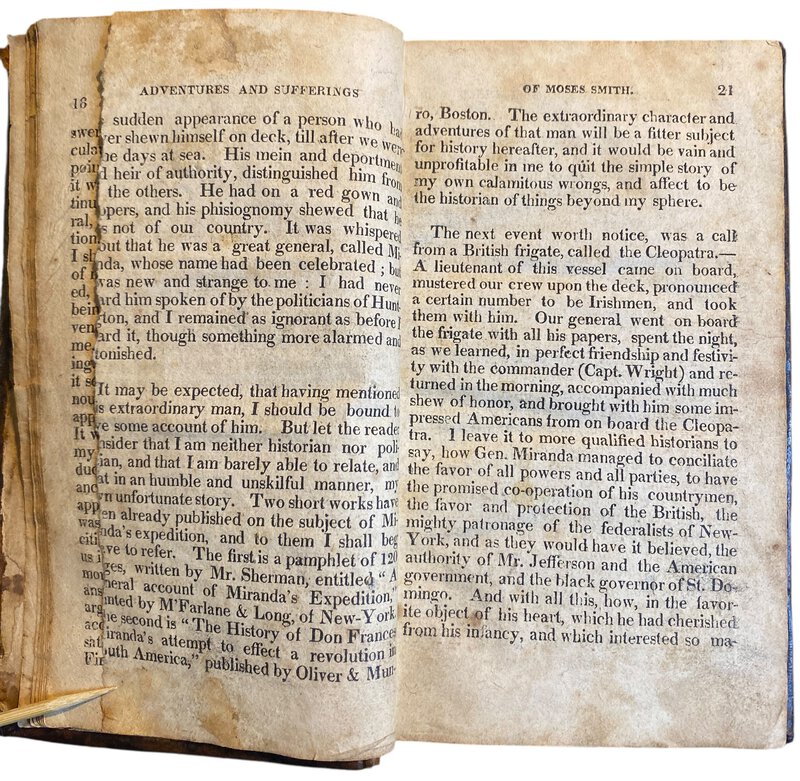 18
ADVENTURES AND SUFFERINGS
sudden appearance of a person who
er shewn himself on deck, till after we were
e days at sea. His mein and deportmen
d heir of authority, distinguished him from
the others. He had on a red gown and
pers, and his phisiognomy shewed that he
s not of our country. It was whispered
out that he was a great general, called Mi-
nda, whose name had been celebrated; but
was new and strange to me: I had never
ard him spoken of by the politicians of Hunt-
ton, and I remained as ignorant as before I
ard it, though something more alarmed and
tonished.
It may be expected, that having mentioned
s extraordinary man, I should be bound to
e some account of him. But let the reade
nsider that I am neither historian nor poli-
ian, and that I am barely able to relate, and
at in an humble and unskilful manner, my
n unfortunate story. Two short works have
en already published on the subject of Mi-
nda's expedition, and to them I shall beg
ve to refer. The first is a pamphlet of 120
ges, written by Mr. Sherman, entitled "A
neral account of Miranda's Expedition,"
nted by M'Farlane & Long, of New-York
e second is "The History of Don Frances
iranda's attempt to effect a revolution in
outh America," published by Oliver & Mun-
swer
cula
poin
it w
tinu
ral,
tion
I sh
of
ed,
bein
ven
me,
ing
it s
nou
app
It w
my
duc
anc
app
was
citi
us i
mo
ans
arg
acc
sat
Fir
OF MOSES SMITH.
21
ro, Boston. The extraordinary character and
adventures of that man will be a fitter subject
for history hereafter, and it would be vain and
unprofitable in me to quit the simple story of
my own calamitous wrongs, and affect to be
the historian of things beyond my sphere.
The next event worth notice, was a call
from a British frigate, called the Cleopatra.—
A lieutenant of this vessel came on board,
mustered our crew upon the deck, pronounced
a certain number to be Irishmen, and took
them with him. Our general went on board
the frigate with all his papers, spent the night,
as we learned, in perfect friendship and festivi-
ty with the commander (Capt. Wright) and re-
turned in the morning, accompanied with much
shew of honor, and brought with him some im-
pressed Americans from on board the Cleopa-
tra. I leave it to more qualified historians to
say, how Gen. Miranda managed to conciliate
the favor of all powers and all parties, to have
the promised co-operation of his countrymen,
the favor and protection of the British, the
mighty patronage of the federalists of New-
York, and as they would have it believed, the
authority of Mr. Jefferson and the American
government, and the black governor of St. Do-
mingo. And with all this, how, in the favor-
ite object of his heart, which he had cherished
from his infancy, and which interested so ma-